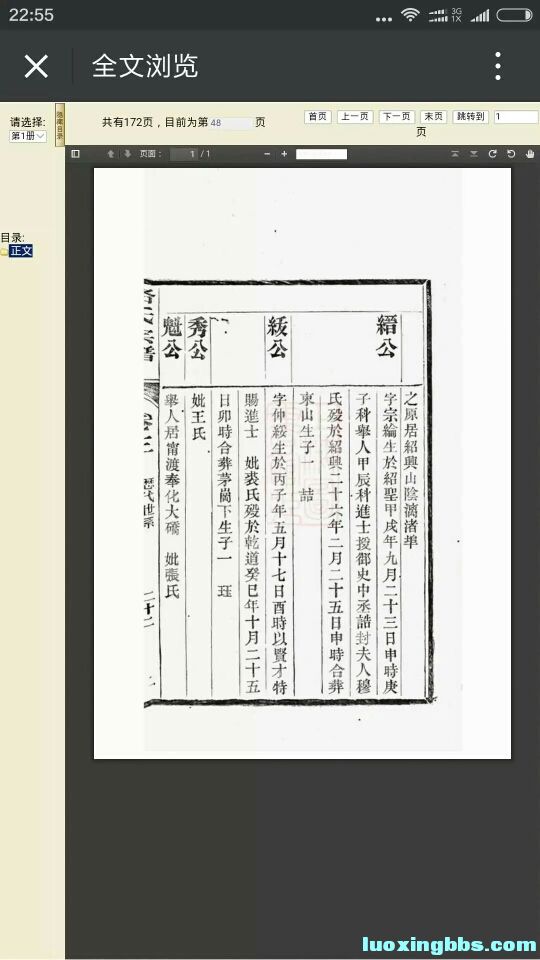 22:55
3G
1X
全文浏览
请选择:
第1册
隐藏目录
共有172页，目前为第 48 页
首页 上一页 下一页 末页 跳转到 1
页
页面： 1 / 1
目录:
正文
縉公
之原居紹興山陰漓渚埠
字宗綸生於紹聖甲戌年九月二十三日申時庚
子科舉人甲辰科進士授御史中丞誥封夫人穆
氏歿於紹興二十六年二月二十五日申時合葬
東山生子一 喆
紱公
字仲綏生於丙子年五月十七日酉時以賢才特
賜進士 妣裘氏歿於乾道癸巳年十月二十五
日卯時合葬茅崗下生子一 珏
秀公
妣王氏
魁公
舉人居甯渡奉化大碻 妣張氏
宗譜
歷代世系
二十二
luoxingbbs.com